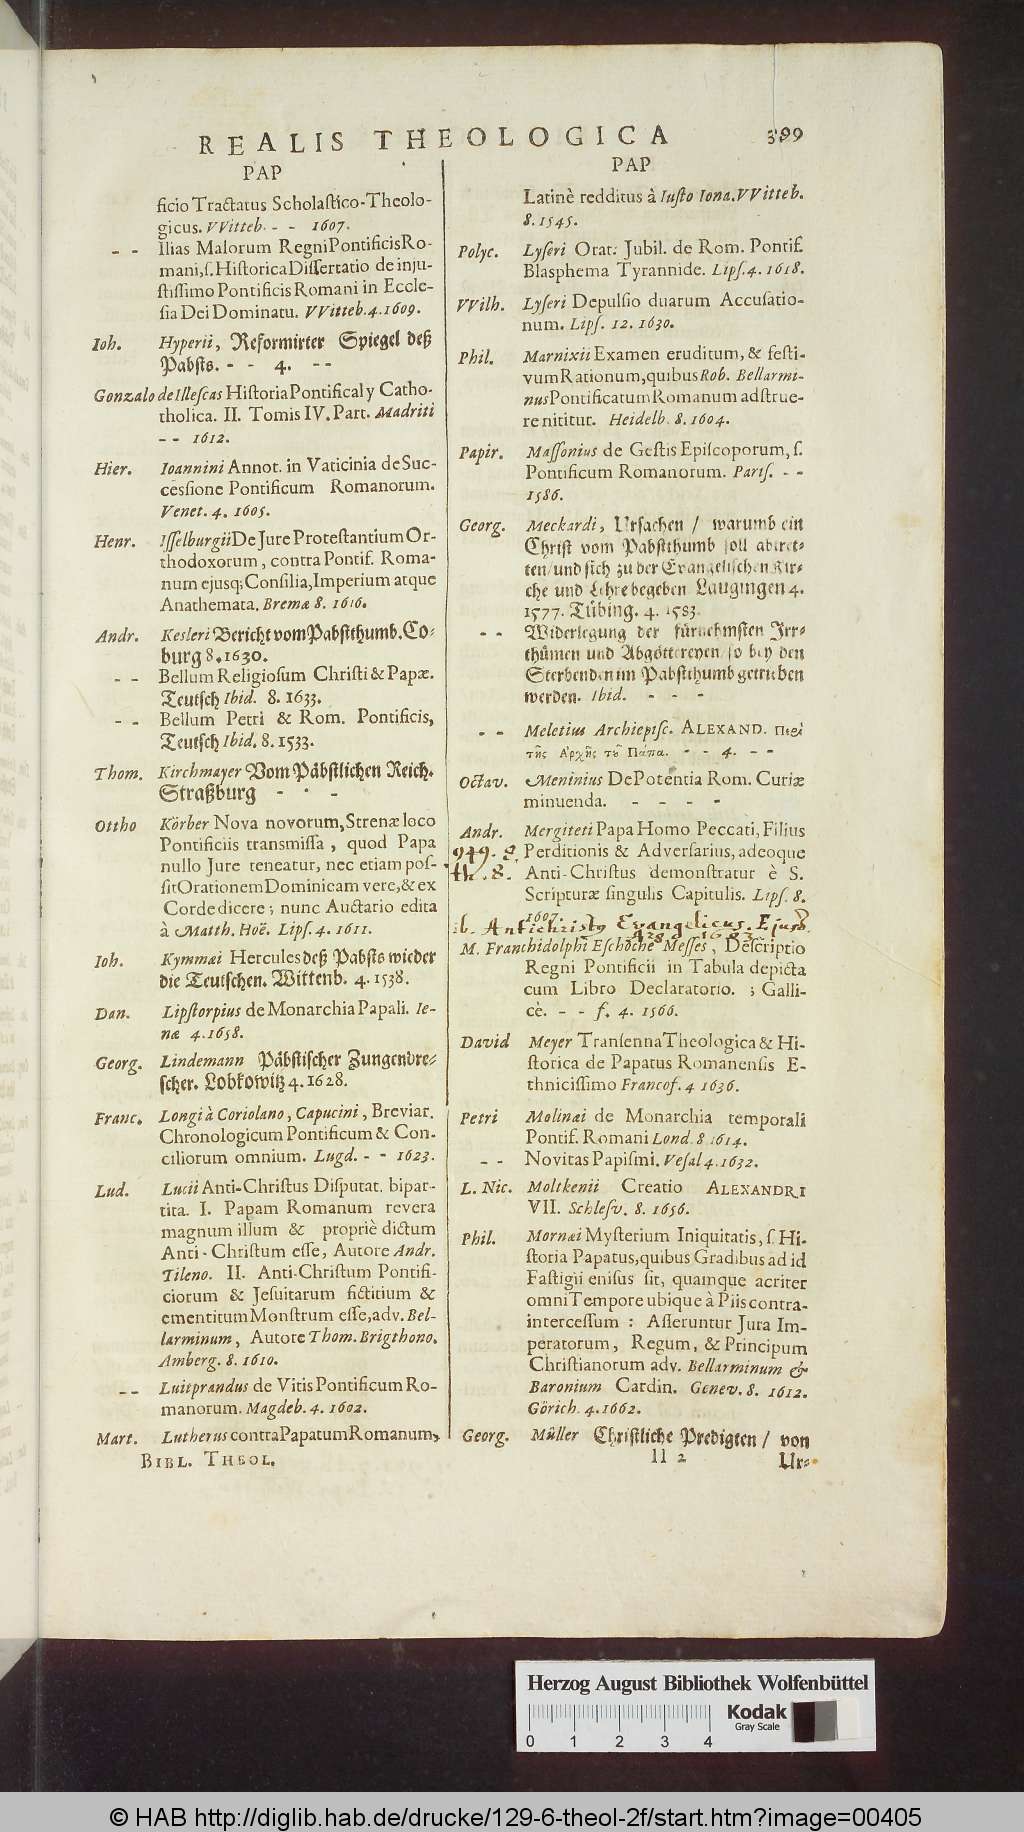 REALIS THEOLOGICA 399
PAP
ficio Tractatus Scholastico-Theolo-
gicus. VVitteb. - - 1607.
- - Ilias Malorum Regni Pontificis Ro-
mani, s. Historica Dissertatio de inju-
stissimo Pontificis Romani in Eccle-
sia Dei Dominatu. VVitteb. 4. 1609.
Ioh. Hyperii, Reformirter Spiegel deß
Pabsts. - - 4. - -
Gonzalo de Illescas Historia Pontifical y Catho-
tholica. II. Tomis IV. Part. Madriti
- - 1612.
Hier. Ioannini Annot. in Vaticinia de Suc-
cessione Pontificum Romanorum.
Venet. 4. 1605.
Henr. Isselburgii De Jure Protestantium Or-
thodoxorum, contra Pontif. Roma-
num ejusq; Consilia, Imperium atque
Anathemata. Bremæ 8. 1616.
Andr. Kesleri Bericht vom Pabstthumb. Co-
burg 8. 1630.
- - Bellum Religiosum Christi & Papæ.
Teutsch Ibid. 8. 1633.
- - Bellum Petri & Rom. Pontificis,
Teutsch Ibid. 8. 1533.
Thom. Kirchmayer Vom Päbstlichen Reich.
Straßburg - - -
Ottho Körber Nova novorum, Strenæ loco
Pontificiis transmissa, quod Papa
nullo Jure teneatur, nec etiam pos-
sit Orationem Dominicam vere, & ex
Corde dicere; nunc Auctario edita
à Matth. Hoë. Lips. 4. 1611.
Ioh. Kymmæi Hercules deß Pabsts wieder
die Teutschen. Wittenb. 4. 1538.
Dan. Lipstorpius de Monarchia Papali. Ie-
næ 4. 1658.
Georg. Lindemann Päbstischer Zungendre-
scher. Lobkowitz 4. 1628.
Franc. Longi à Coriolano, Capucini, Breviar.
Chronologicum Pontificum & Con-
ciliorum omnium. Lugd. - - 1623.
Lud. Lucii Anti-Christus Disputat. bipar-
tita. I. Papam Romanum revera
magnum illum & propriè dictum
Anti-Christum esse, Autore Andr.
Tileno. II. Anti-Christum Pontifi-
ciorum & Jesuitarum fictitium &
ementitum Monstrum esse, adv. Bel-
larminum, Autore Thom. Brigthono.
Amberg. 8. 1610.
- - Luitprandus de Vitis Pontificum Ro-
manorum. Magdeb. 4. 1602.
Mart. Lutherus contra Papatum Romanum,
BIBL. THEOL.
PAP
Latinè redditus à Iusto Iona. VVitteb.
8. 1545.
Polyc. Lyseri Orat. Jubil. de Rom. Pontif.
Blasphema Tyrannide. Lips. 4. 1618.
VVilh. Lyseri Depulsio duarum Accusatio-
num. Lips. 12. 1630.
Phil. Marnixii Examen eruditum, & festi-
vum Rationum, quibus Rob. Bellarmi-
nus Pontificatum Romanum adstrue-
re nititur. Heidelb. 8. 1604.
Papir. Massonius de Gestis Episcoporum, s.
Pontificum Romanorum. Paris. - -
1586.
Georg. Meckardi, Ursachen / warumb ein
Christ vom Pabstthumb soll abtret-
ten / und sich zu der Evangelischen Kir-
che und Lehre begeben Laugingen 4.
1577. Tübing. 4. 1583.
- - Widerlegung der fürnehmsten Irr-
thümen und Abgöttereyen / so bey den
Sterbenden im Pabstthumb getrieben
werden. Ibid. - - -
- - Meletius Archiepisc. ALEXAND. Περὶ
τῆς Ἀρχῆς τοῦ Πάπα. - - 4. - -
Octav. Meninius De Potentia Rom. Curiæ
minuenda. - - - -
Andr. Mergiteti Papa Homo Peccati, Filius
949. 8. Perditionis & Adversarius, adeoque
th. 8. Anti-Christus demonstratur è S.
Scripturæ singulis Capitulis. Lips. 8.
1607.
ib. Antichristus Evangelicus. Ejusd.
1683.
M. Franchidolphi Eschöche Messes, Descriptio
Regni Pontificii in Tabula depicta
cum Libro Declaratorio. ; Galli-
cè. - - f. 4. 1566.
David Meyer Transenna Theologica & Hi-
storica de Papatus Romanensis E-
thnicissimo Francof. 4 1636.
Petri Molinæi de Monarchia temporali
Pontif. Romani Lond. 8 1614.
- - Novitas Papismi. Vesal 4. 1632.
L. Nic. Moltkenii Creatio ALEXANDRI
VII. Schlesv. 8. 1656.
Phil. Mornæi Mysterium Iniquitatis, s. Hi-
storia Papatus, quibus Gradibus ad id
Fastigii enisus sit, quamque acriter
omni Tempore ubique à Piis contra-
intercessum : Asseruntur Jura Im-
peratorum, Regum, & Principum
Christianorum adv. Bellarminum &
Baronium Cardin. Genev. 8. 1612.
Görich. 4. 1662.
Georg. Müller Christliche Predigten / von
ll 2 Ur-
Herzog August Bibliothek Wolfenbüttel
Kodak
Gray Scale
0 1 2 3 4
© HAB http://diglib.hab.de/drucke/129-6-theol-2f/start.htm?image=00405